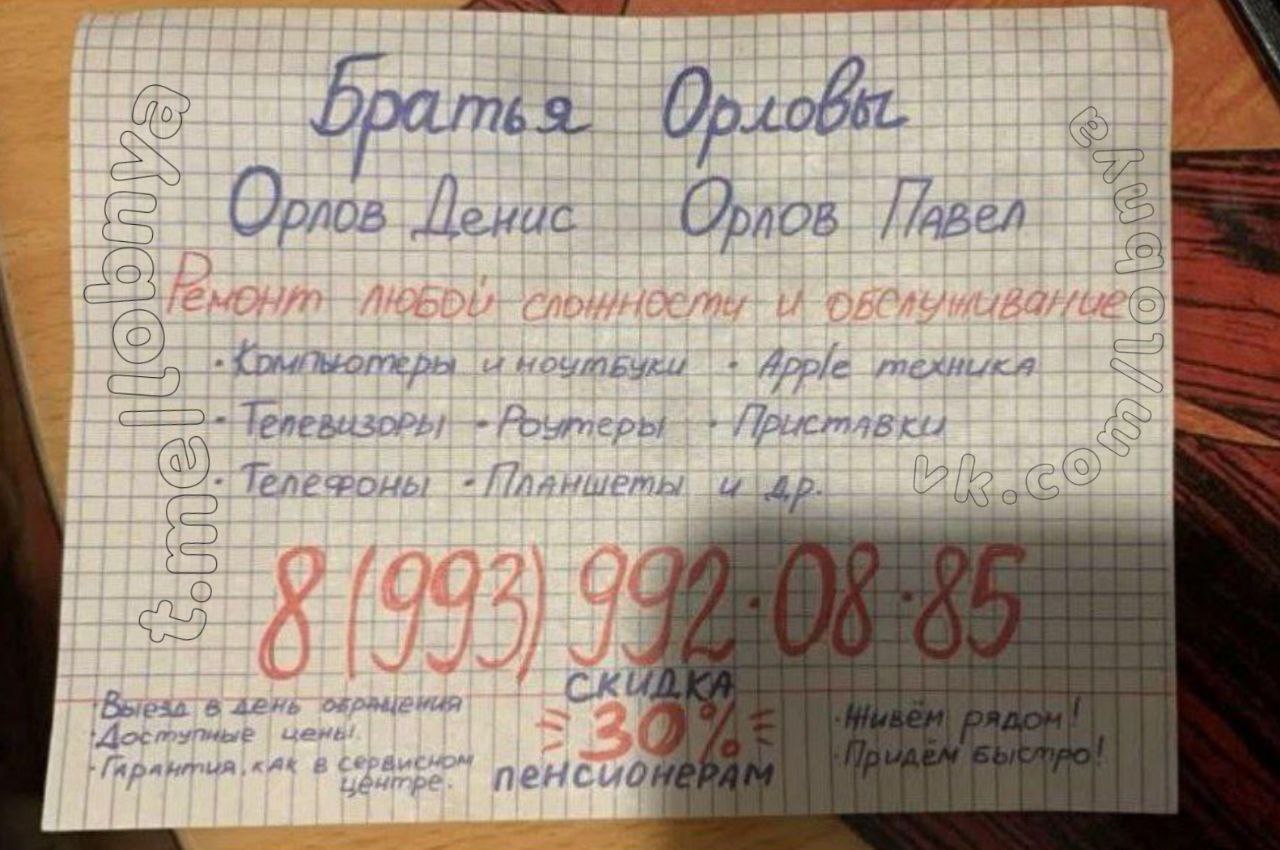 Братья Орловы
Орлов Денис Орлов Павел
Ремонт любой сложности и обслуживание
· Компьютеры и ноутбуки · Apple техника
· Телевизоры · Роутеры · Приставки
· Телефоны · Планшеты и др.
8(993) 992·08·85
· Выезд в день обращения
· Доступные цены.
· Гарантия, как в сервисном
центре.
СКИДКА
30%
ПЕНСИОНЕРАМ
· Живём рядом!
· Придём быстро!
t.me/lobnya
vk.com/lobnya